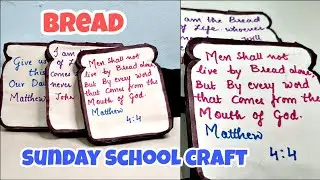 BREAD
Give us
this
Our Da
Matthew
I am
of Li
comes
never
John
Men Shall not
live by Bread alone,
But By every word
that Comes from the
Mouth of God.
Matthew
4:4
I am the Bread
of Life whoever
will
Men Shall not
live by Bread alone
But By every word
that Comes from the
Mouth of God.
Matthew
4:4
SUNDAY SCHOOL CRAFT